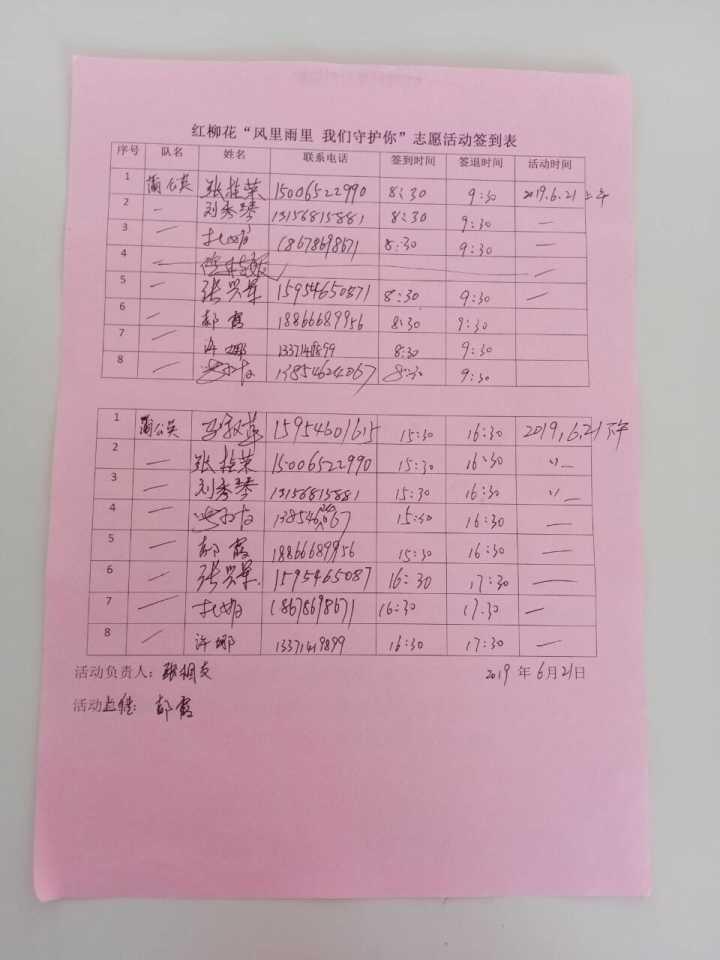 红柳花“风里雨里 我们守护你”志愿活动签到表
序号 队名 姓名 联系电话 签到时间 签退时间 活动时间
1 蒲公英 张桂荣 15006522990 8:30 9:30 2019.6.21 上午
2 — 刘秀琴 13156815881 8:30 9:30 —
3 — 18678698671 8:30 9:30 —
4 — —
5 — 张兴军 8:30 9:30 —
6 — 郝霞 18866689956 8:30 9:30
7 — 许娜 8:30 9:30
8 13854624067 8:30 9:30
1 蒲公英 15954601615 15:30 16:30 2019,6,21下午
2 — 张桂荣 15006522990 15:30 16:30
3 — 刘秀琴 13156815881 15:30 16:30
4 — 15:30 16:30 —
5 — 郝霞 18866689956 15:30 16:30 —
6 — 张兴军 1595465087 16:30 17:30 —
7 — 18678698671 16:30 17:30 —
8 — 许娜 13371419899 16:30 17:30 —
活动负责人: 2019 年 6月21日
活动 郝霞